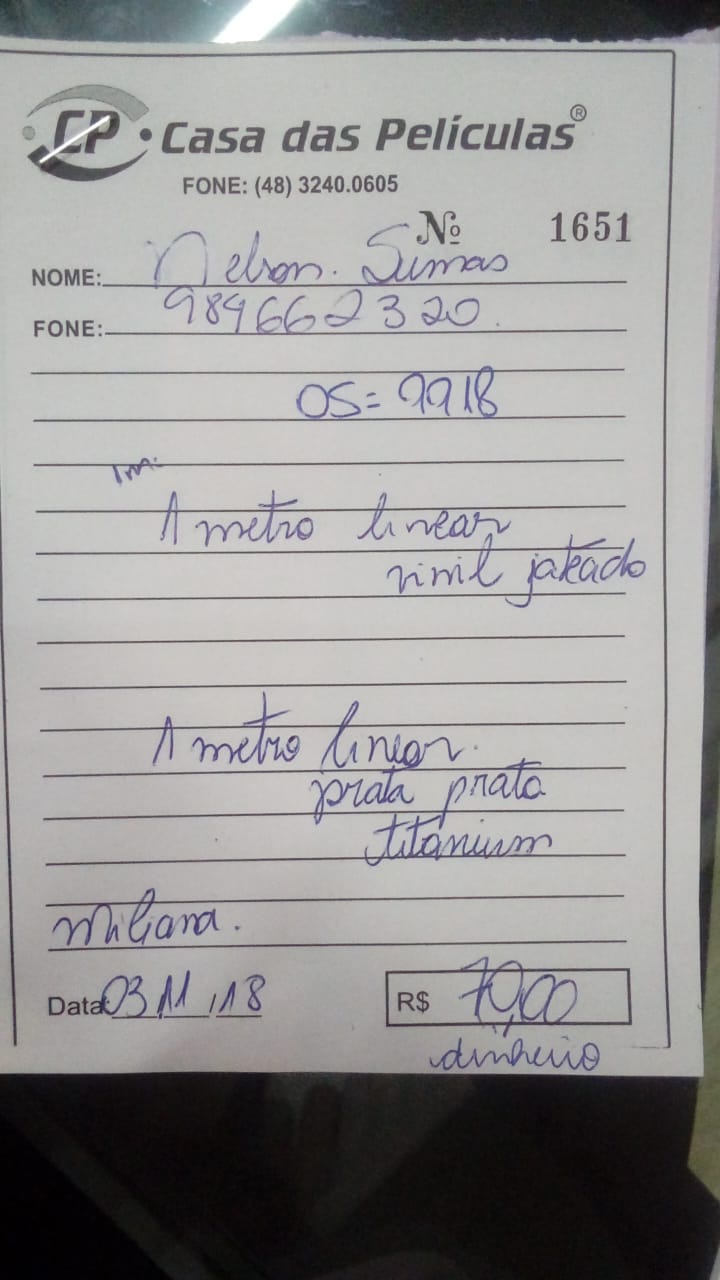 CP • Casa das Películas®
FONE: (48) 3240.0605
Nº 1651
NOME: Nelson.
FONE: 984662320.
OS= 9918
1m:
1 metro linear
vinil jateado
1 metro linear.
prata prata
titanium
miliana.
Data 03,11,18 R$ 70,00
dinheiro